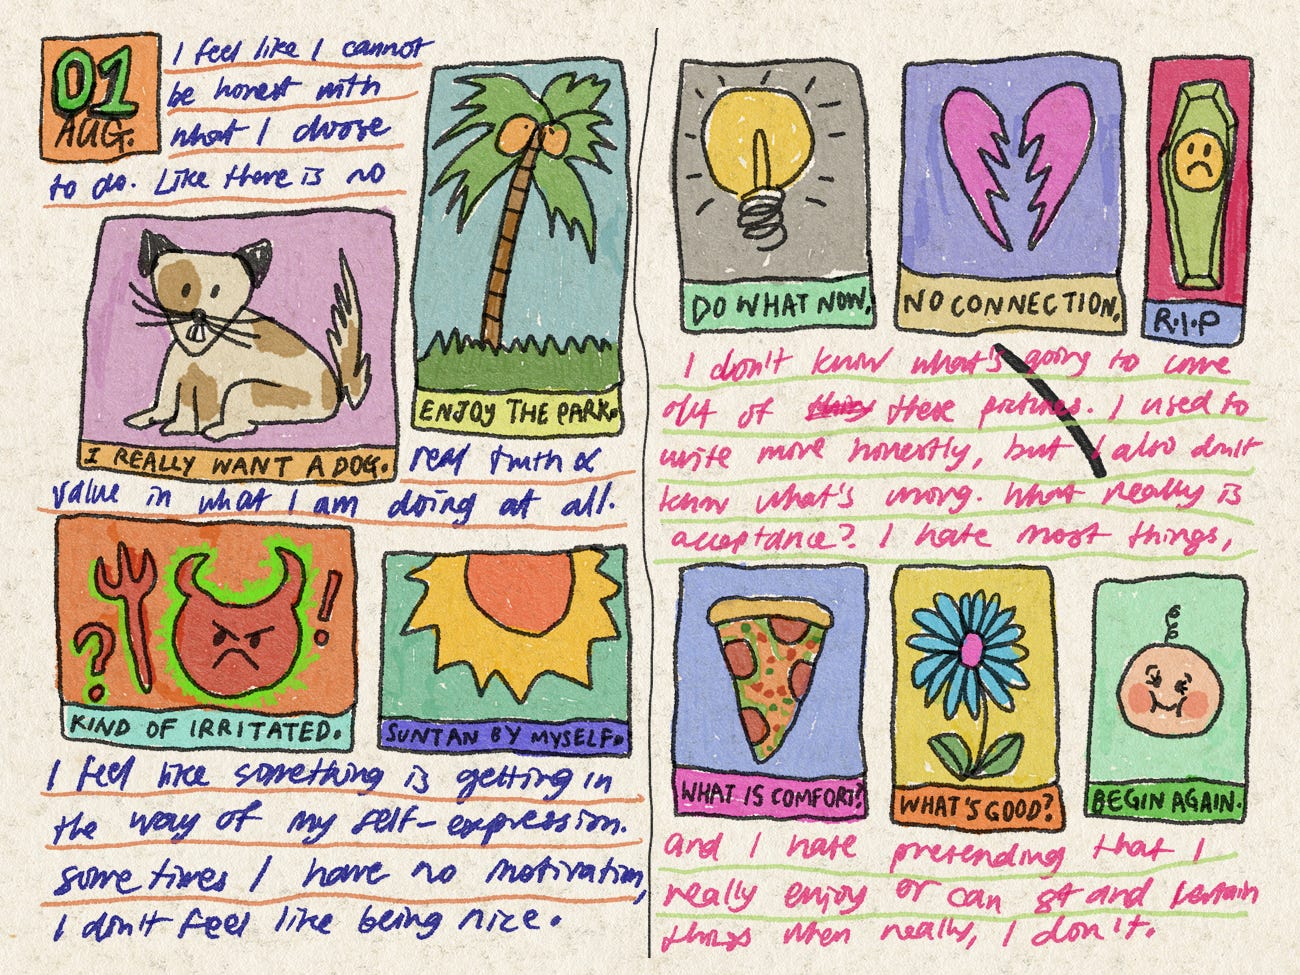 01
AUG.
I feel like I cannot
be honest with
what I choose
to do. Like there is no
I REALLY WANT A DOG.
ENJOY THE PARK.
real truth &
value in what I am doing at all.
KIND OF IRRITATED.
SUNTAN BY MYSELF.
I feel like something is getting in
the way of my self-expression.
sometimes I have no motivation,
I don't feel like being nice.
DO WHAT NOW.
NO CONNECTION.
R.I.P
I don't know what's going to come
out of these pictures. I used to
write more honestly, but I also don't
know what's wrong. What really is
acceptance? I hate most things,
WHAT IS COMFORT?
WHAT'S GOOD?
BEGIN AGAIN.
and I hate pretending that I
really enjoy or can stand certain
things when really, I don't.